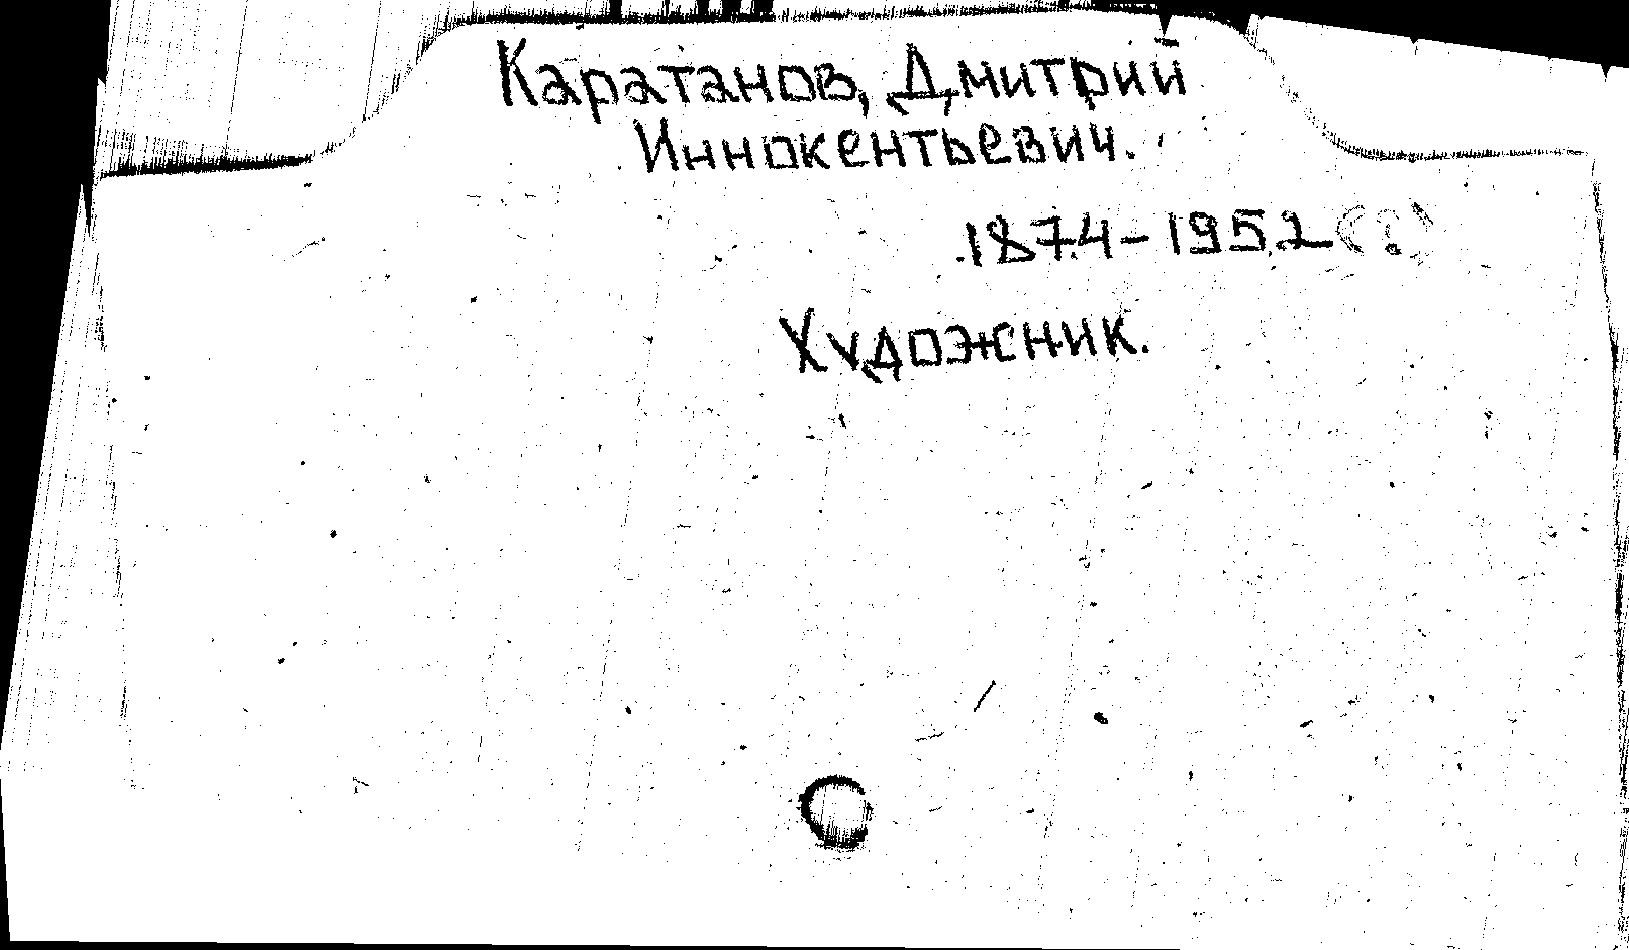 Каратанов, Дмитрий
Иннокентьевич.
1874-1952 (?)
Художник.